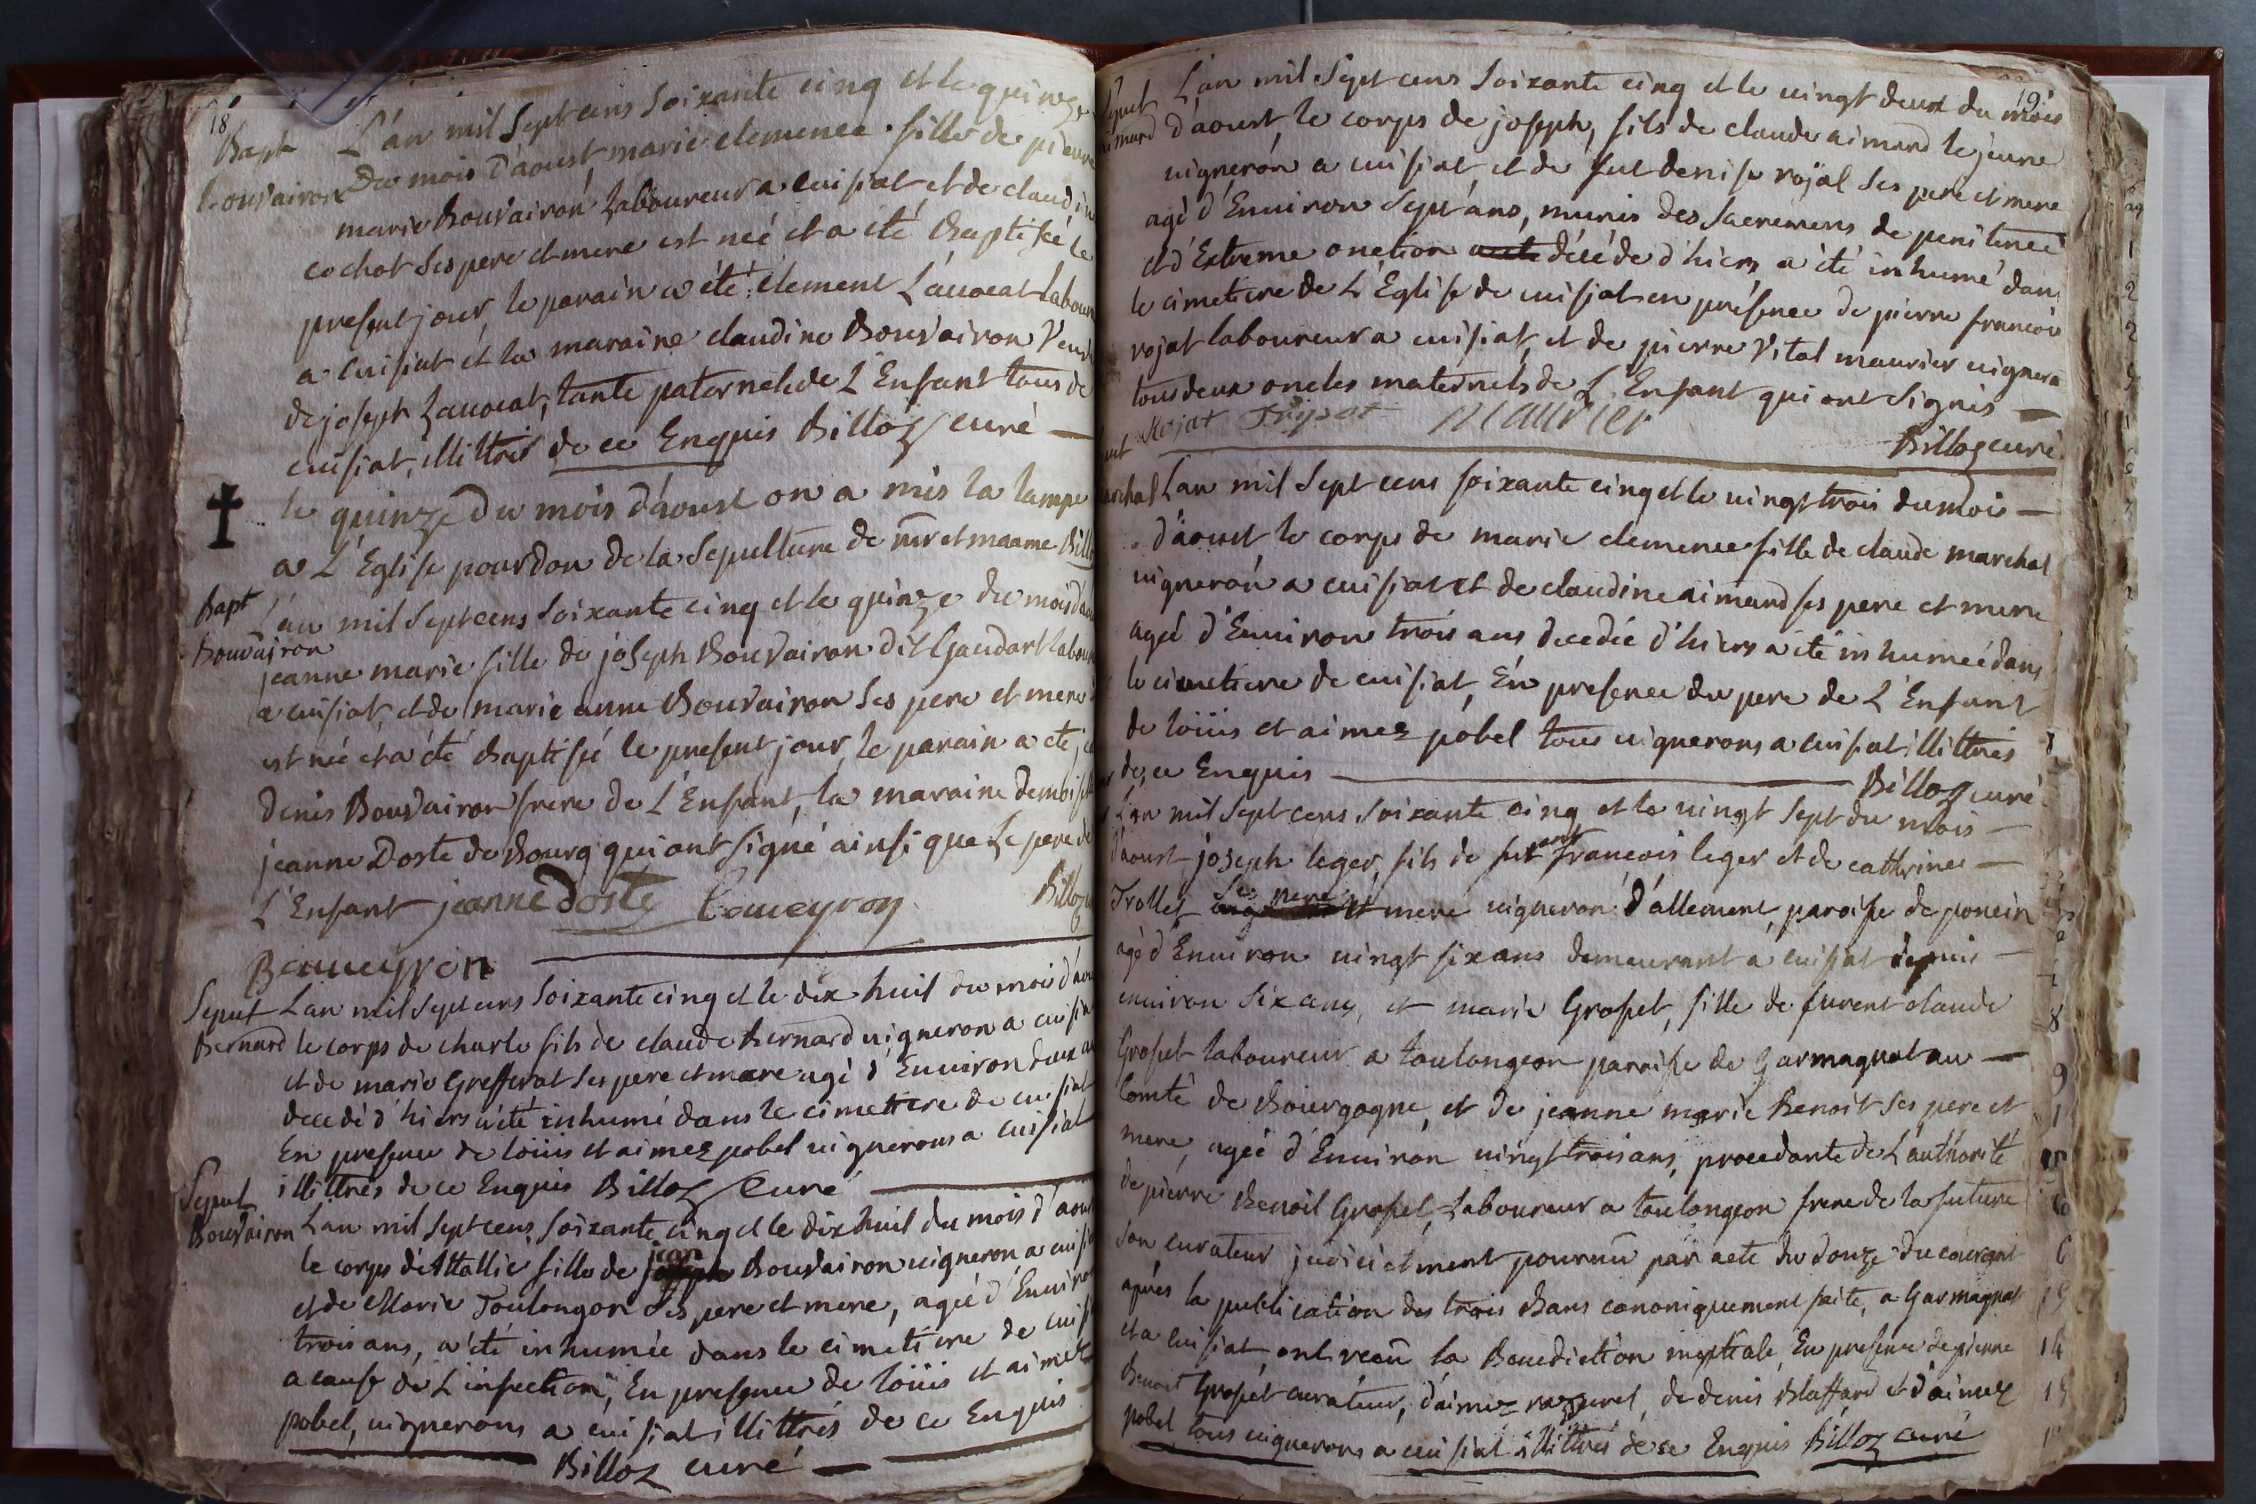 18
Bapt
Bouvairon
L'an mil Sept cens Soixante cinq et le quinze
Du mois d'aoust marie clemence fille de pierre
marie Bouvairon Laboureur a cuisiat et de claudine
cochot Ses pere et mere est neé et a eté Baptiseé le
present jour, le parain a été clement Lauocat Labour
a cuisiat et la maraine claudine Bouvairon Veuve
de joseph Lauocat, tante paternelle de L'Enfant tous de
cuisiat, illittrés de ce Enquis Billoz curé
le quinze du mois d'aoust on a mis la lampe
a L'Eglise pour don de la Sepulture de mr et maame Billo
Bapt
Bouvairon
L'an mil Septcens Soixante cinq et le quinze du mois d'aou
jeanne marie fille de joseph Bouvairon dit Gaudart labour
a cuisiat, et de marie anne Bouvairon Ses pere et mere
est née et a été Baptisée le present jour, le parain a eté
denis Bouvairon frere de L'Enfant, la maraine demoiselle
jeanne Doste de Bourg qui ont Signé ainsi que Le pere de
L'Enfant jeanne Doste Beaueyron Billoz
Beaueyron
Sepul
Bernard
Lan mil Sept cens Soixante cinq et le dix huit du mois d'aou
le corps de charle fils de claude Bernard uigneron a cuisiat
et de marie Grefferat Ses pere et mere agé d'Enuiron deux an
decedé d'hiers a été inhumé dans le cimettere de cuisiat
En presence de loüis et aimez pobel uignerons a cuisiat
illittrés de ce Enquis Billoz Curé
Sepul
Bouvairon
Lan mil Sept cens Soixante cinq et le dix huit du mois d'aoust
le corps d'Attallie fille de jean Bouvairon uigneron a cuisia
et de Marie Toulongon Ses pere et mere, ageé d'Enuiron
trois ans, a été inhumée dans le cimetiere de cuis
a cause de L'infection, En presence de loüis et aimez
pobel, uignerons a cuisiat illittrés de ce Enquis
Billoz curé
19
L'an mil Sept cens Soixante cinq et le uingt deux du mois
d'aoust, le corps de joseph, fils de claude aimard le jeune
uigneron a cuisiat et de fut denise rojat Ses pere et mere
agé d'Enuiron Sept ans, munis des Sacremens de penitence
et d'Extreme onction décédé d'hiers a été inhumé dans
le cimetiere de L'Eglise de cuisiat en présence de pierre francois
rojat laboureur a cuisiat, et de pierre Vital maurier uigneron
tous deux oncles maternels de L'Enfant qui ont Signés
Rojat maurier
Billoz curé
Lan mil Sept cens Soixante cinq et le uingt trois du mois
d'aoust le corps de marie clemence fille de claude marchal
uigneron a cuisiat et de claudine aimard ses pere et mere
ageé d'Enuiron trois ans decedée d'hiers a été inhumeé dans
le cimetiere de cuisiat, En presence du pere de L'Enfant
de loüis et aimez pobel tous uignerons a cuisiat illittrés
de ce Enquis Billoz curé
L'an mil Sept cens Soixante cinq et le uingt Sept du mois
d'aoust joseph leger, fils de fut francois leger et de cathrine
Trollet Ses pere et mere uigneron d'allement, paroisse de poncin
agé d'Enuiron uingt six ans demeurant a cuisiat depuis
enuiron Six ans, et marie Grosset, fille de furent claude
Grosset laboureur a toulongeon paroisse de Germagnat au
Comté de Bourgogne, et de jeanne marie Benoit Ses pere et
mere, ageé d'Enuiron uingt trois ans, procedante de L'authorité
de pierre Benoit Grosset, Laboureur a toulongeon frere de la future
Son curateur judiciclment pouruû par acte du douze du courant
aprés la publication des trois Bans canoniquement faite, a Garmagnat
et a cuisiat, ont recû la Benediction nuptiale, En presence de pierre
Benoit Grosset curateur, d'aimez razurel, de denis Blaffard et d'aimez
pobel tous uignerons a cuisiat illittrés de ce Enquis Billoz curé